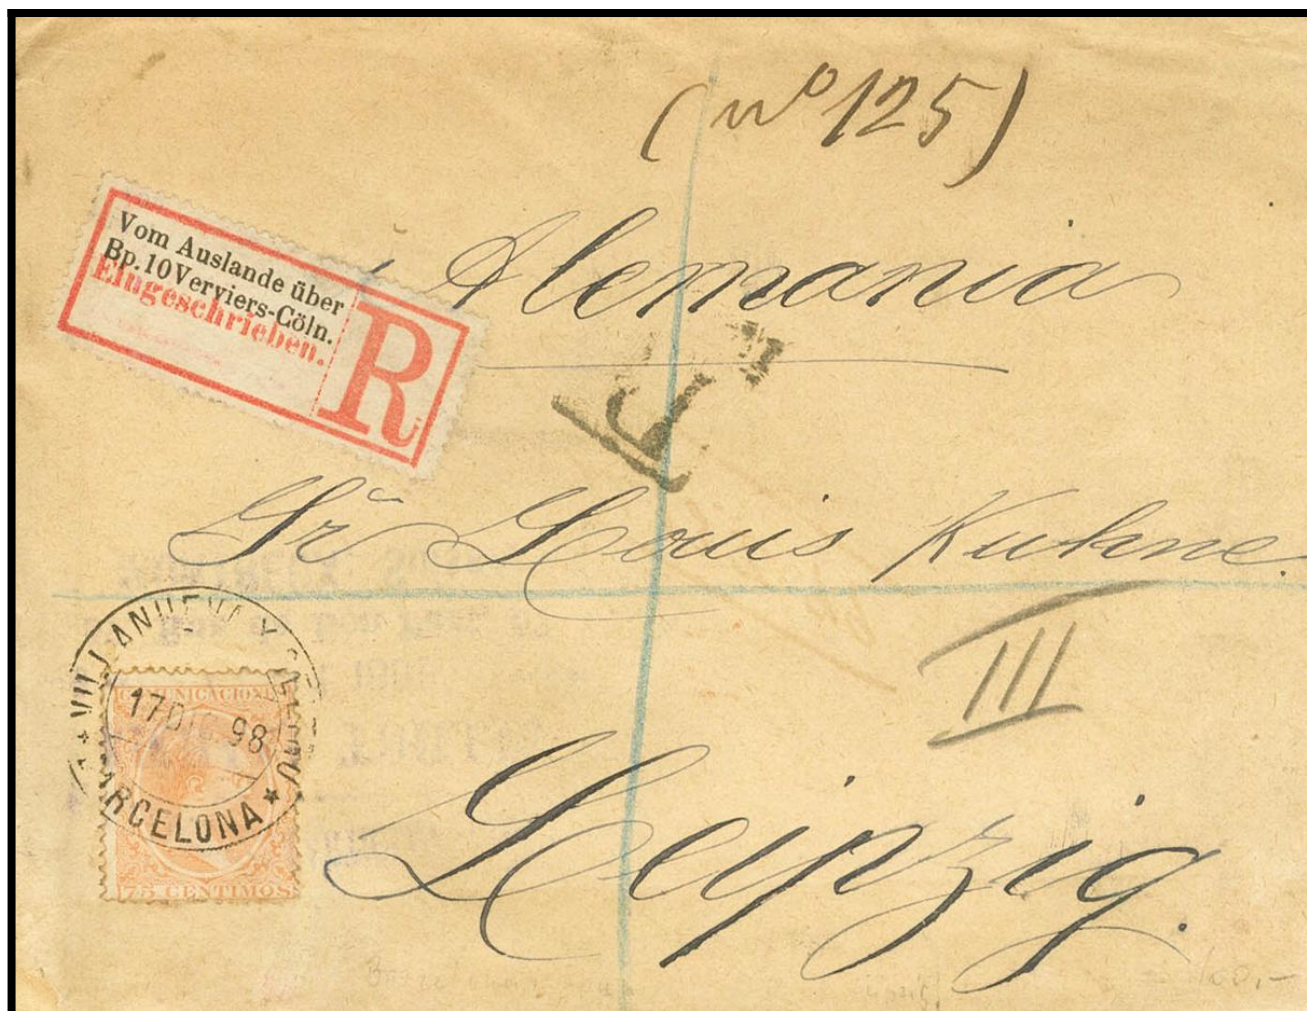 (nº 125)
Vom Auslande über
Bp. 10 Verviers-Cöln.
Eingeschrieben.
R
Alemania
Sr Louis Kuhne.
III
VILLANUEVA Y GELTRU
17 DIC 98
BARCELONA
COMUNICACIONES
75 CENTIMOS
Leipzig.